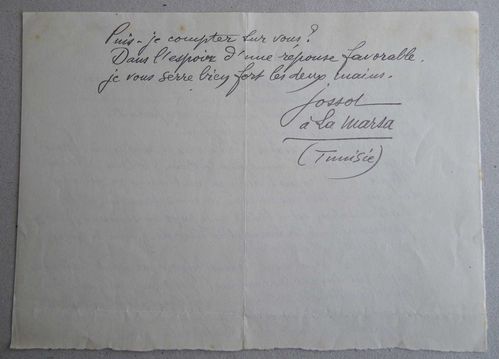 Puis-je compter sur vous?
Dans l'espoir d'une réponse favorable,
je vous serre bien fort les deux mains.
Jossot
à La Marsa
(Tunisie)